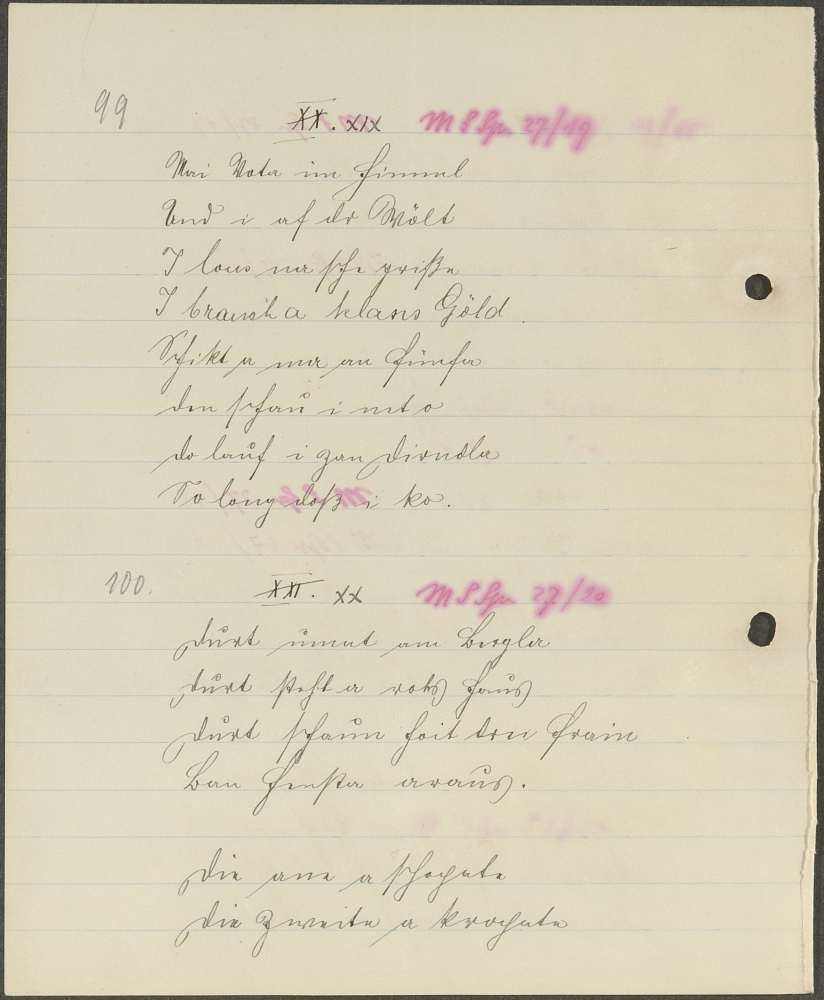 99
XX. XIX M S Spr 27/19
Mei Vota im Himml
Und i af dr Wölt
I lous na sche griße
I brauch a klans Göld.
Schikt a mer an Fünfa
den schau i net o
do lauf i zan Dirndla
So long doß i ko.
100.
XXI. XX M S Spr 27/20
Durt unnt am Bergla
Durt steht a rots Haus
Durt schaun hoit drei Frain
Ban Fensta araus.
Die ane a
Die Zweite a